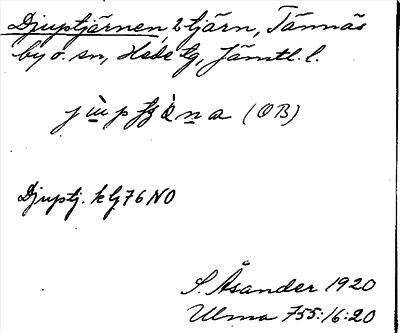 Djuptjärnen, 2 tjärn, Tännäs
by o. sn, Hede tg, Jämtl. l.
(OB)
Djuptj. kbj 76 NO
S. Åsander 1920
Ulma 755:16:20